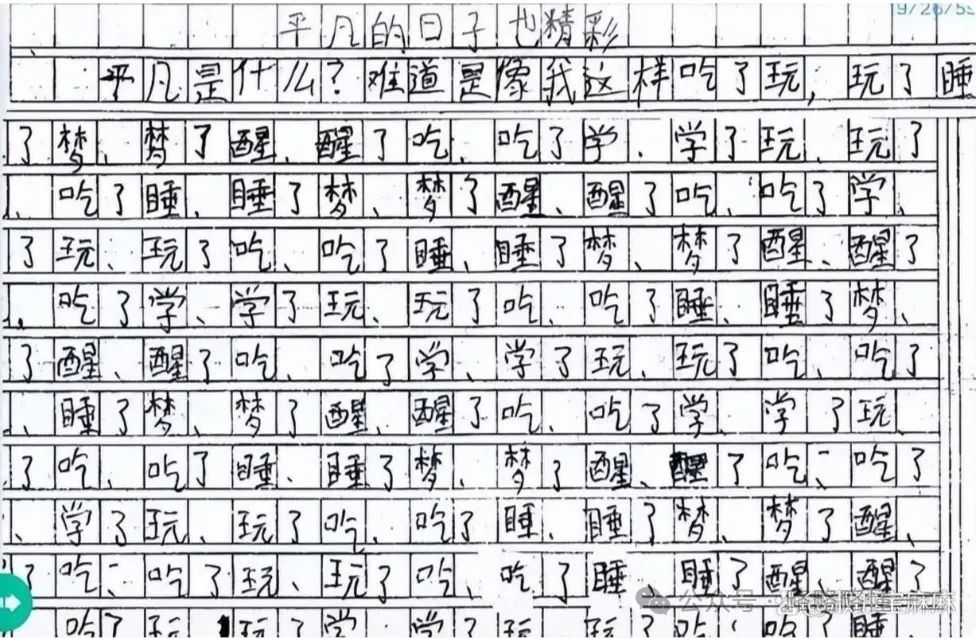 19/26/55
平凡的日子也精彩
平凡是什么?难道是像我这样吃了玩,玩了睡
了梦、梦了醒、醒了吃、吃了学、学了玩、玩了
、吃了睡、睡了梦、梦了醒、醒了吃、吃了学、
了玩、玩了吃、吃了睡、睡了梦、梦了醒、醒了
、吃了学、学了玩、玩了吃、吃了睡、睡了梦、
了醒、醒了吃、吃了学、学了玩、玩了吃、吃了
、睡了梦、梦了醒、醒了吃、吃了学、学了玩
了吃、吃了睡、睡了梦、梦了醒、醒了吃、吃了
、学了玩、玩了吃、吃了睡、睡了梦、梦了醒、
了吃、吃了玩、玩了吃、吃了睡、睡了醒、醒了
吃了玩、玩了学、学了玩、玩了吃、吃了睡
公众号